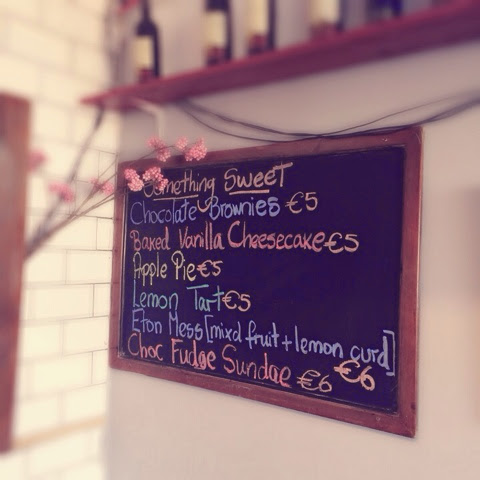 Something Sweet
Chocolate Brownies €5
Baked Vanilla Cheesecake €5
Apple Pie €5
Lemon Tart €5
Eton Mess [mixd fruit + lemon curd] €6
Choc Fudge Sundae €6